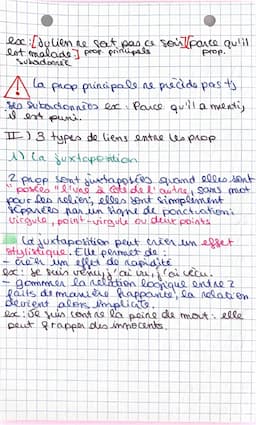 ex: [Julien ne sort pas ce soir] [parce qu'il
est malade.] prop. principale prop.
subordonnée
La prop principale ne précède pas tj
ses subordonnées ex: Parce qu'il a menti,
il est puni.
II) 3 types de liens entre les prop
1) La juxtaposition
2 prop sont juxtaposées quand elles sont
"posées" l'une à côté de l'autre, sans mot
pour les relier, elles sont simplement
séparées par un signe de ponctuation:
virgule, point-virgule ou deux points
La juxtaposition peut créer un effet
stylistique. Elle permet de :
- créer un effet de rapidité
ex: Je suis venu, j'ai vu, j'ai vécu.
- gommer la relation logique entre 2
faits de manière frappante, la relation
devient alors implicite.
ex: Je suis contre la peine de mort: elle
peut frapper des innocents.